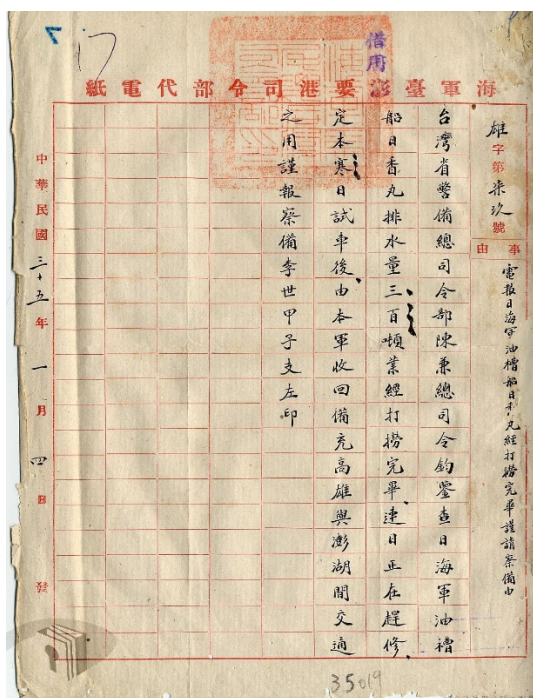 17
借用
海軍臺澎要港司令部代電紙
雄字第柒玖號
事由
電報日海軍油槽船日香丸經打撈完畢謹請察備由
台灣省警備總司令部陳兼總司令鈞鑒查日海軍油槽
船日香丸排水量三百噸業經打撈完畢連日正在趕修
定本寒日試車後由本軍收回備充高雄與澎湖間交通
之用謹報察備李世甲子支左印
中華民國三十五年一月四日發
35019